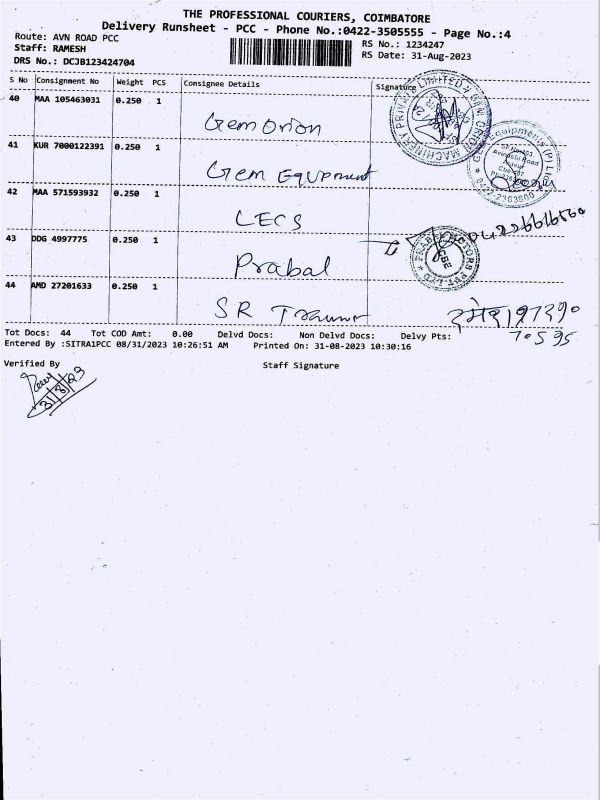 THE PROFESSIONAL COURIERS, COIMBATORE
Delivery Runsheet - PCC - Phone No.:0422-3505555 - Page No.:4
Route: AVN ROAD PCC
Staff: RAMESH
DRS No.: DCJB123424704
RS No.: 1234247
RS Date: 31-Aug-2023
S No Consignment No Weight PCS Consignee Details Signature
40 MAA 105463031 0.250 1
Gem Orion
41 KUR 7000122391 0.250 1
Gem Equpment
42 MAA 571593932 0.250 1
LECS
43 DDG 4997775 0.250 1
Prabal
44 AMD 27201633 0.250 1
SR
Tot Docs: 44 Tot COD Amt: 0.00 Delvd Docs: Non Delvd Docs: Delvy Pts:
70595
Entered By :SITRA1PCC 08/31/2023 10:26:51 AM Printed On: 31-08-2023 10:30:16
Verified By Staff Signature
31/8/23